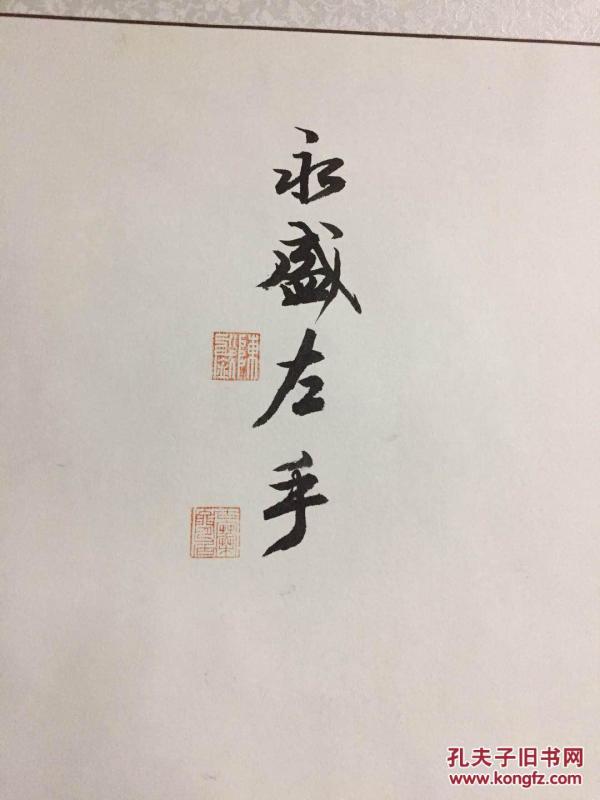 永盛左手
孔夫子旧书网
www.kongfz.com